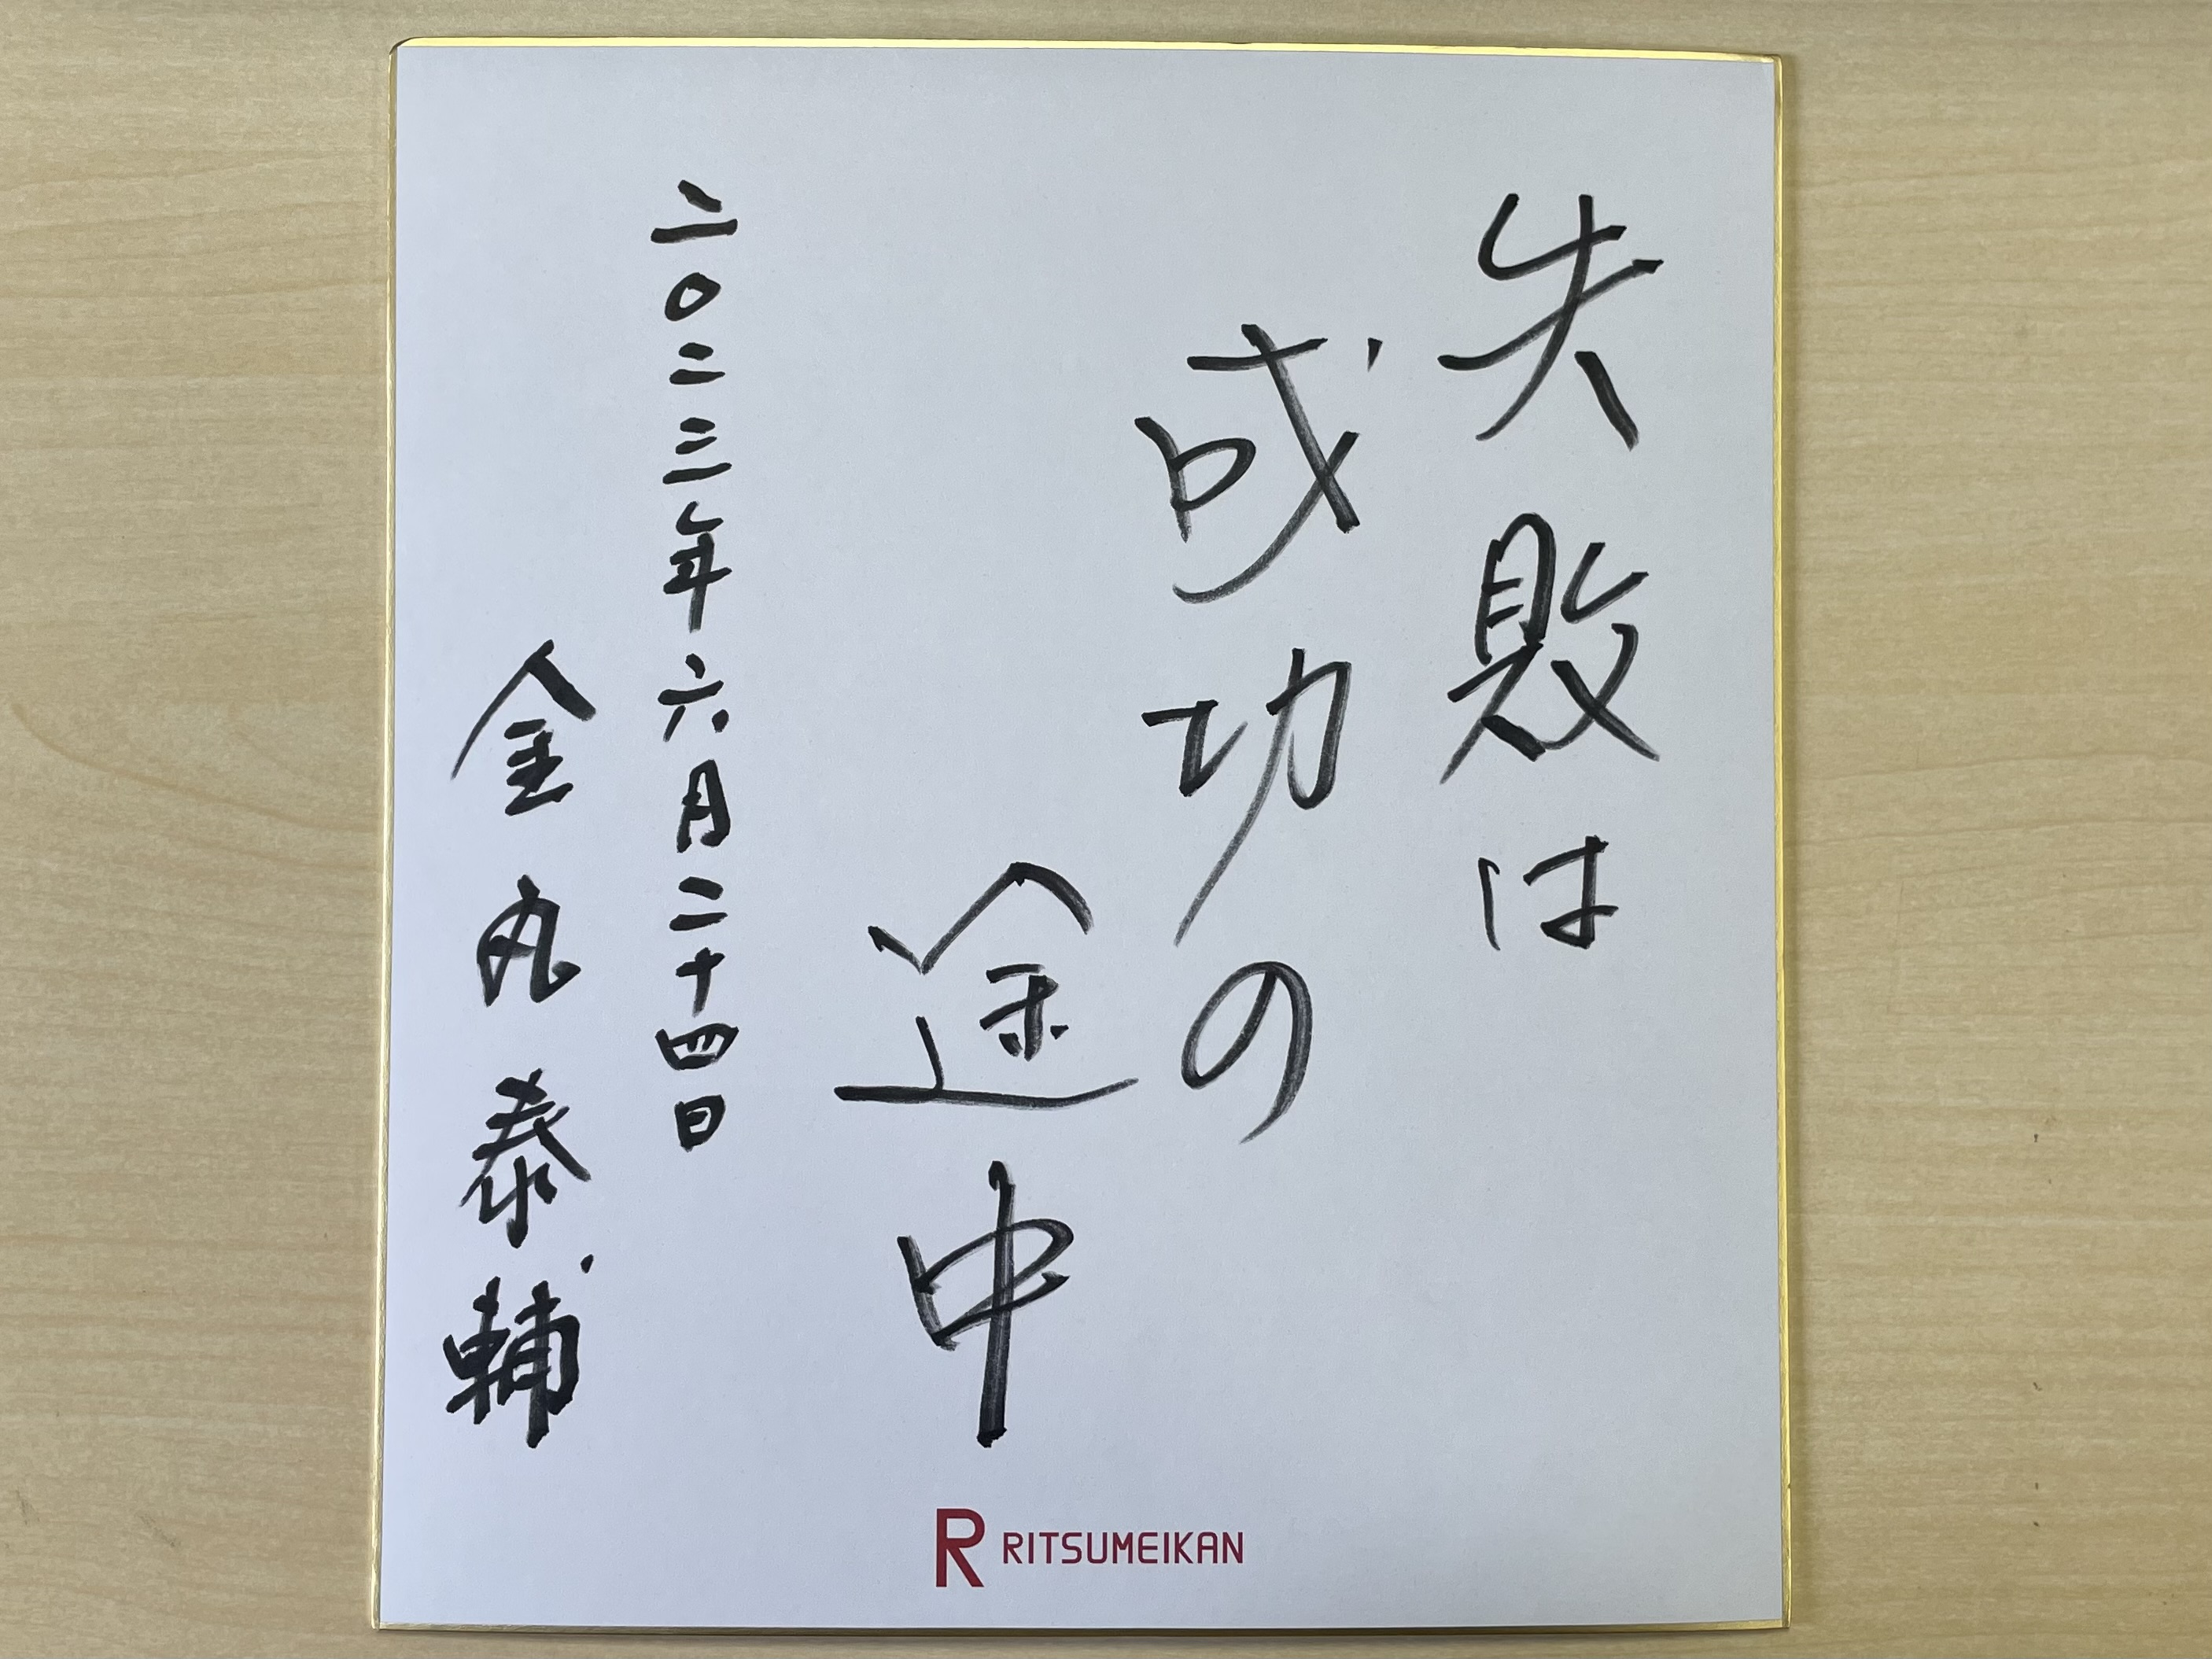 失敗は
成功の
途中
二〇二三年六月二十四日
金丸泰輔
R RITSUMEIKAN